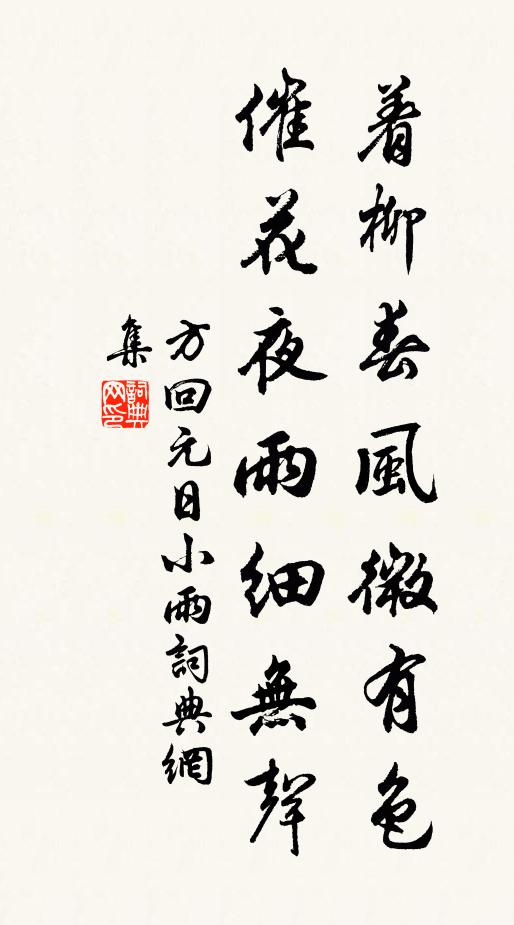 着柳春風微有色
催花夜雨細無聲
方回元日小雨詞典網
集
詞典网印